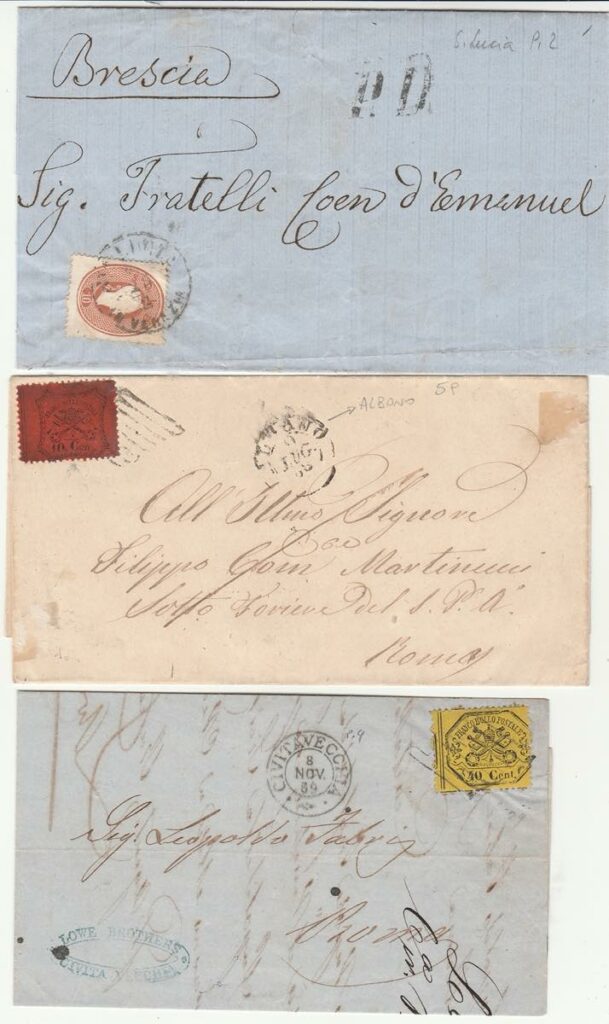 S. Lucia P. 2
Brescia
P. D.
Sig. Fratelli Coen d'Emanuel
10
VENEZIA
10 Cent.
ALBANO 5P
LUG
All Illmo Signore
Filippo Com Martinucci
Sotto Foriere del S. P. A.
Roma
CIVITAVECCHIA
8
NOV.
69
FRANCO BOLLO POSTALE
40 Cent.
Sig. Leopoldo Fabri
Roma
LOWE BROTHERS
CIVITA VECCHIA